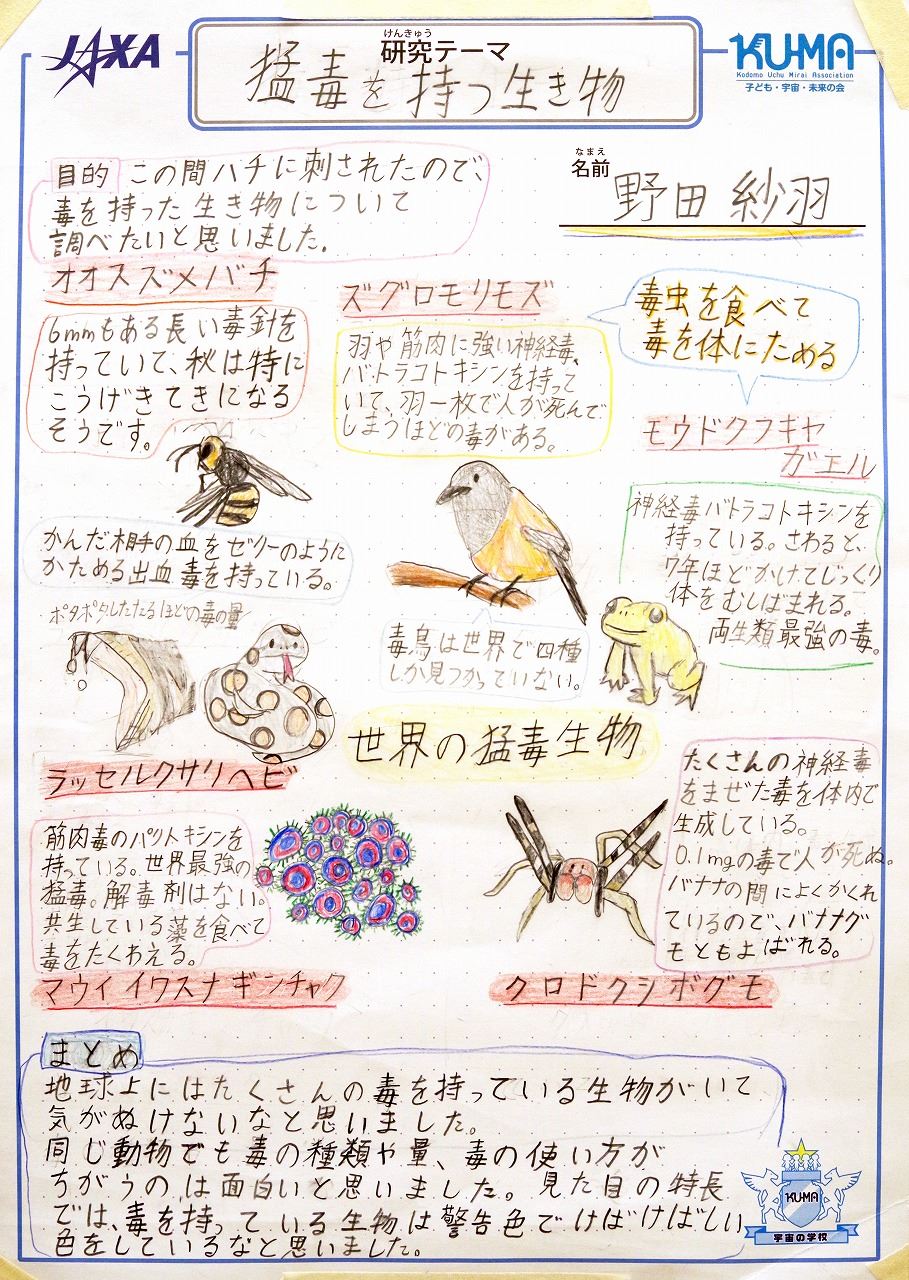 JAXA
けんきゅう
研究テーマ
猛毒を持つ生き物
KU-MA
Kodomo Uchu Mirai Association
子ども・宇宙・未来の会
目的 この間ハチに刺されたので、
毒を持った生き物について
調べたいと思いました。
なまえ
名前
野田 紗羽
オオスズメバチ
6mmもある長い毒針を
持っていて、秋は特に
こうげきてきになる
そうです。
ズグロモリモズ
羽や筋肉に強い神経毒、
バトラコトキシンを持って
いて、羽一枚で人が死んで
しまうほどの毒がある。
毒虫を食べて
毒を体にためる
モウドクフキヤ
ガエル
神経毒バトラコトキシンを
持っている。さわると、
7年ほどかけてじっくり
体をむしばまれる。
両生類最強の毒。
かんだ相手の血をゼリーのように
かためる出血毒を持っている。
ポタポタしたたるほどの毒の量
毒鳥は世界で四種
しか見つかっていない。
世界の猛毒生物
ラッセルクサリヘビ
筋肉毒のパリトキシンを
持っている。世界最強の
猛毒。解毒剤はない。
共生している藻を食べて
毒をたくわえる。
マウイイワスナギンチャク
たくさんの神経毒
をまぜた毒を体内で
生成している。
0.1mgの毒で人が死ぬ。
バナナの間によくかくれ
ているので、バナナグ
モともよばれる。
クロドクシボグモ
まとめ
地球上にはたくさんの毒を持っている生物がいて
気がぬけないなと思いました。
同じ動物でも毒の種類や量、毒の使い方が
ちがうのは面白いと思いました。見た目の特長
では、毒を持っている生物は警告色でけばけばしい
色をしているなと思いました。
KU-MA
宇宙の学校